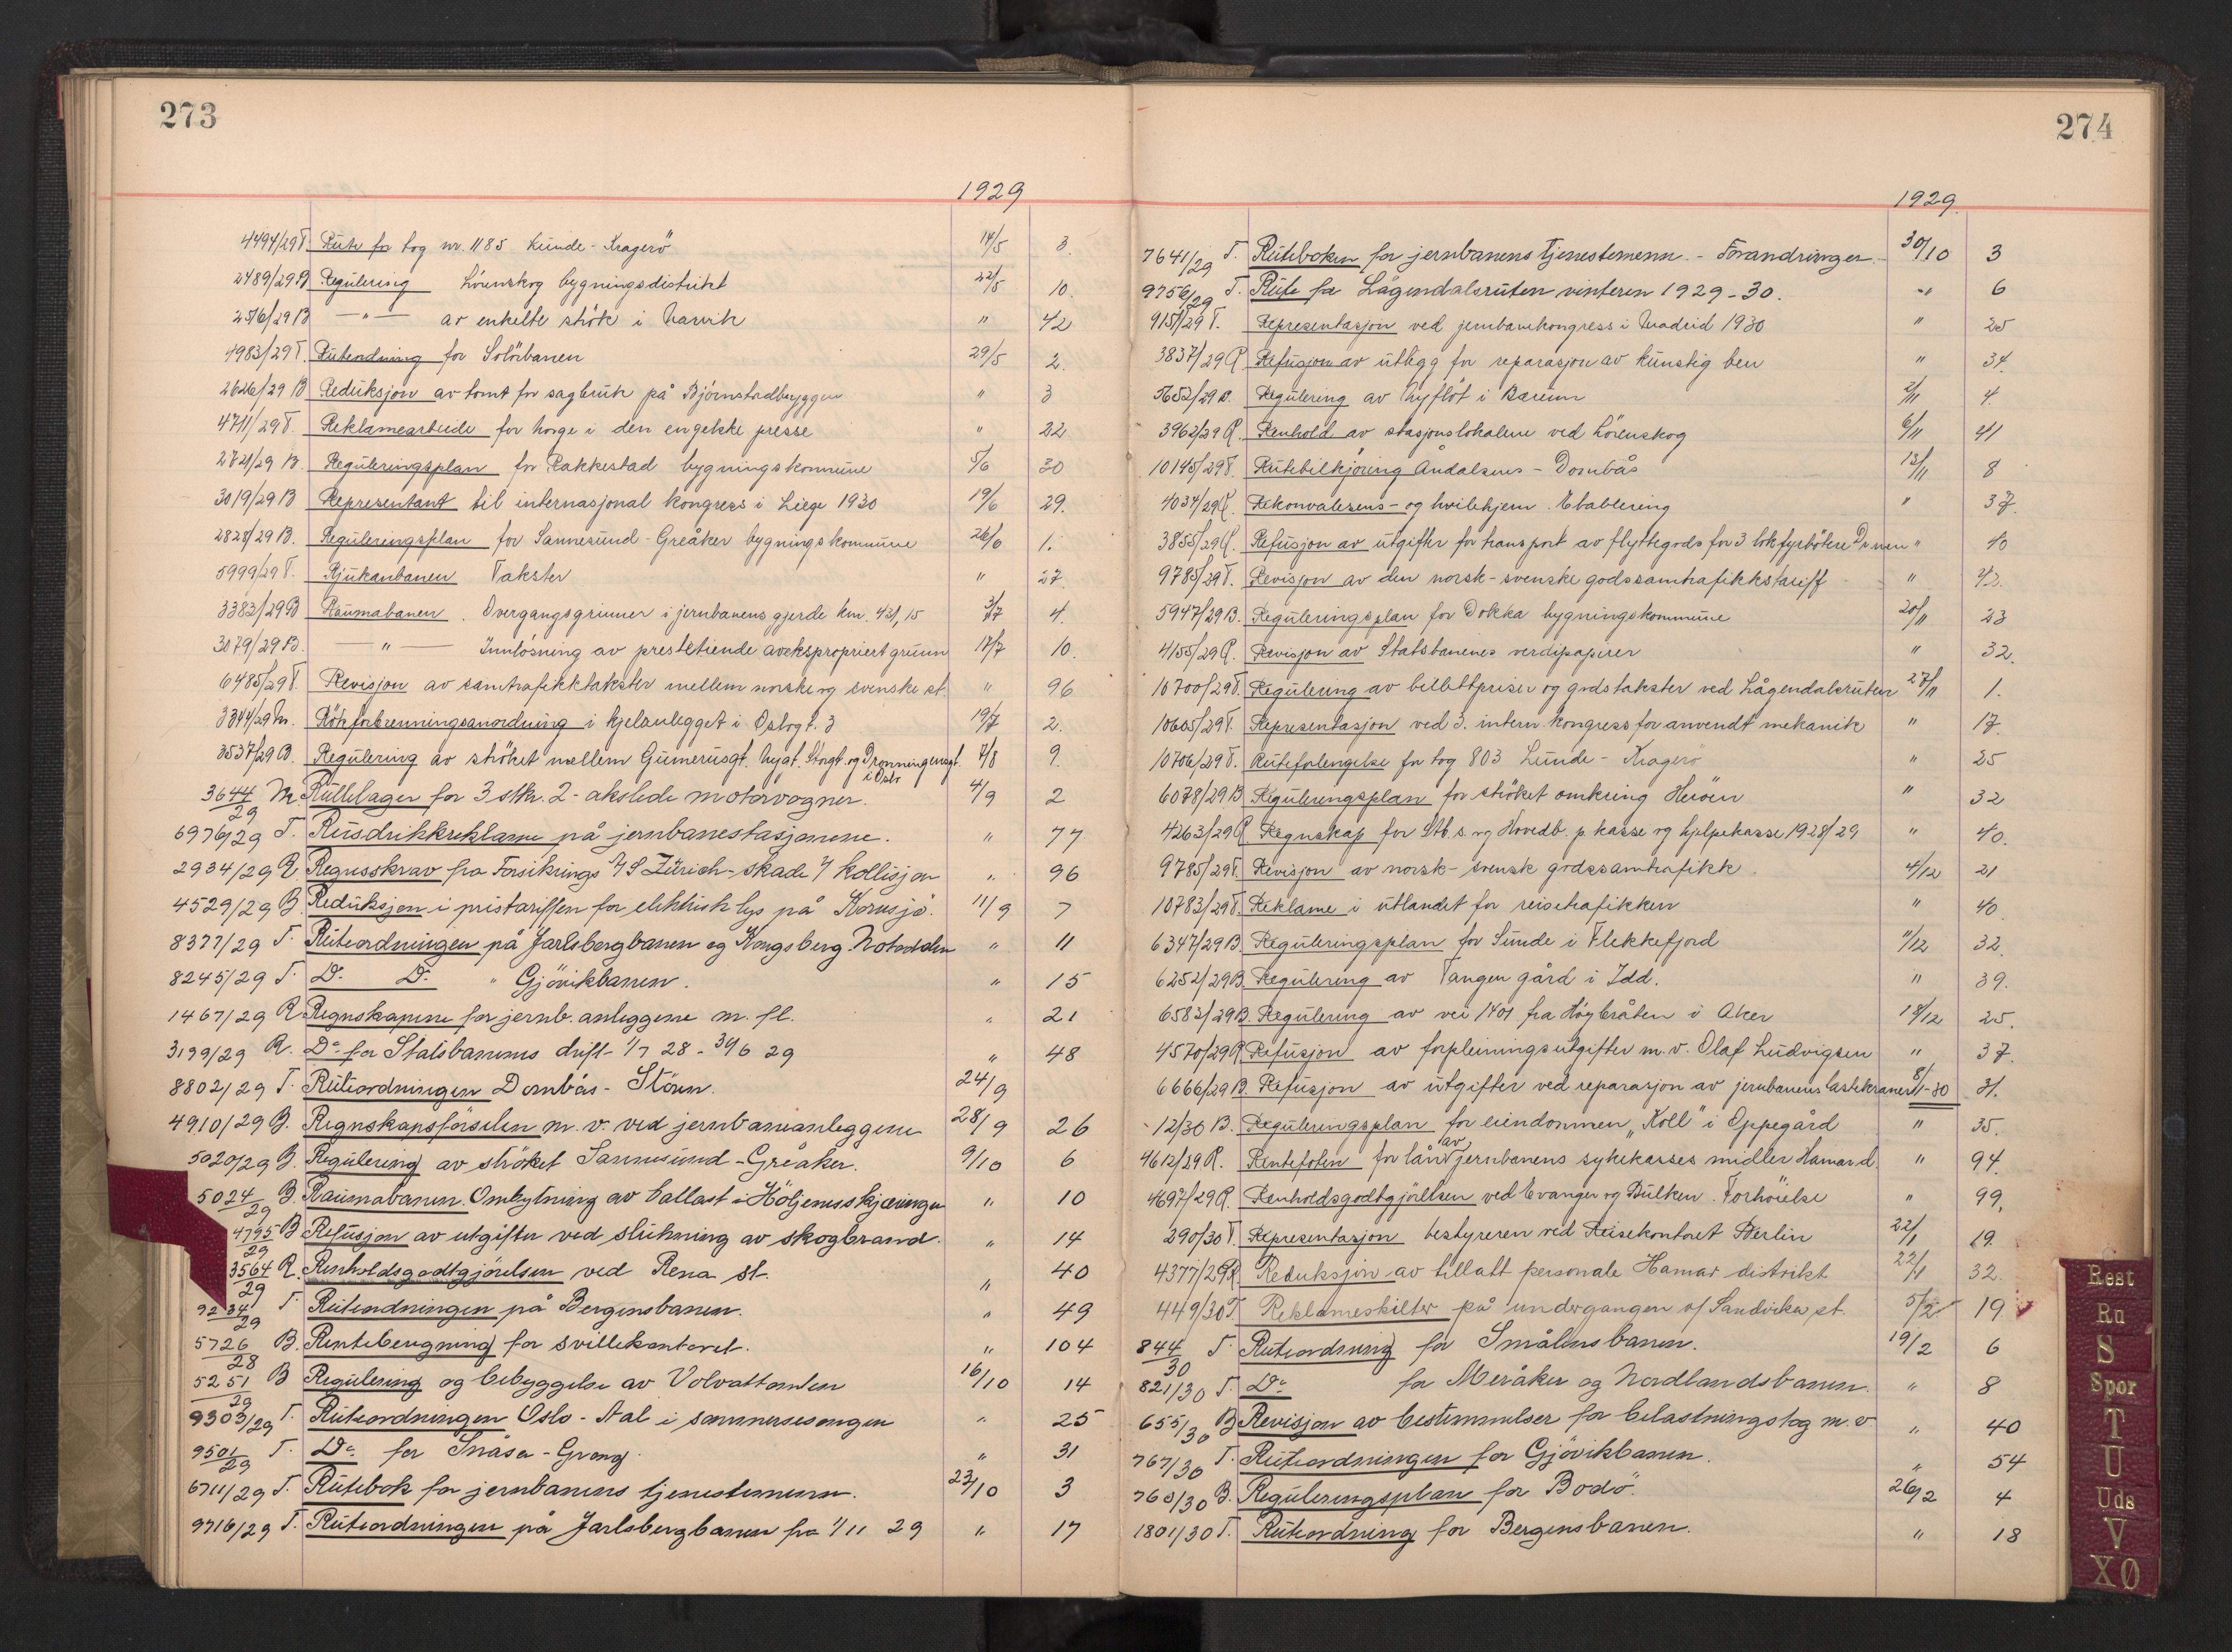 273
1929
4494/29 T. Rute for tog nr. 1185 Lunde - Kragerö 14/5 3.
2489/29 B Regulering Lörenskog bygningsdistrikt 22/5 10.
2516/29 B — " — av enkelte strök i Narvik " 42
4983/29 T. Ruteordning for Solörbanen 29/5 2.
2626/29 B Reduksjon av tomt for sagbruk på Björnstadbryggen " 3
4711/29 T. Reklamearbeide for Norge i den engelske presse " 22
2721/29 B. Reguleringsplan for Rakkestad bygningskommune 5/6 30
3019/29 B Representant til internasjonal kongress i Liege 1930 19/6 29.
2828/29 B. Reguleringsplan for Sannesund - Greåker bygningskommune 26/6 1.
5999/29 T. Rjukanbanen Takster " 27
3383/29 B Raumabanen. Overgangsgrinner i jernbanens gjerde km. 431,15 3/7 4.
3079/29 B. — " — Innlösning av prestetiende av ekspropriert grunn 17/7 10.
6485/29 T. Revisjon av samtrafikktakster mellem norske og svenske st. " 96
3344/29 M. Rökforbrenningsanordning i kjelanlegget i Oslogt. 3 19/7 2.
3537/29 B. Regulering av ströket mellem Gunerusgt. Nygt. Storgt. og Dronningensgt. i Oslo 7/8 9.
3644/29 M. Rullelager for 3 stk. 2-akslede motorvogner. 4/9 2
6976/29 T. Rusdrikkreklame på jernbanestasjonene. " 77
2934/29 R. Regresskrav fra Forsikrings A/S Zürich - skade v/ kollisjon " 96
4529/29 B. Reduksjon i pristariffen for elektrisk lys på Kornsjö. 11/9 7
8377/29 T. Ruteordningen på Jarlsbergbanen og Kongsberg Notodden " 11
8245/29 T. Do Do " Gjövikbanen. " 15
1467/29 R Regnskapene for jernb. anleggene m. fl. " 21
3199/29 R. Do for Statsbanenes drift - 1/7 28 - 30/6 29 " 48
8802/29 T. Ruteordningen Dombås - Stören. 24/9
4910/29 B. Regnskapsförselen m. v. ved jernbaneanleggene 28/9 26
5020/29 B. Regulering av ströket Sannesund - Greåker. 9/10 6
5024/29 B. Raumabanen. Ombytning av ballast i Höljenesskjæringen " 10
4795/29 B Refusjon av utgifter ved slukning av skogbrand. " 14
3564/29 R. Renholdsgodtgjörelsen ved Rena st. " 40
9234/29 T. Ruteordningen på Bergensbanen. " 49
5726/28 B. Renteberegning for svillekontoret. " 104
5251/29 B Regulering og bebyggelse av Volvattomten 16/10 14
9303/29 T. Ruteordningen Oslo - Aal i sommersesongen " 25
9501/29 T. Do for Snåsa - Grong. " 31
6711/29 T. Rutebok for jernbanens tjenestemenn. 23/10 3
9716/29 T. Ruteordningen på Jarlsbergbanen fra 1/11 29 " 17
274
1929.
7641/29 T. Ruteboken for jernbanens tjenestemenn. - Forandringer. 30/10 3
9756/29 T. Rute for Lågendalsruten vinteren 1929-30. " 6
9151/29 T. Representasjon ved jernbanekongress i Madrid 1930 " 25
3837/29 R Refusjon av utlegg for reparasjon av kunstig ben " 34.
5652/29 B. Regulering av Nyflöt i Bærum 2/11 4.
3962/29 R. Renhold av stasjonslokalene ved Lörenskog 6/11 41
10145/29 T. Rutebilkjöring Åndalsnes - Dombås 13/11 8
4034/29 R. Rekonvalesens- og hvilehjem. Etablering " 37.
3855/29 R. Refusjon av utgifter for transport av flyttegods for 3 lokfyrbötere Drmen " 40
9785/29 T. Revisjon av den norsk-svenske godssamtrafikkstariff " 42.
5947/29 B. Reguleringsplan for Dokka bygningskommune 20/11 23
4155/29 R. Revisjon av Statsbanenes verdipapirer " 32.
10700/29 T. Regulering av billettpriser og godstakster ved Lågendalsruten 27/11 1.
10605/29 T. Representasjon ved 3. intern. kongress for anvendt mekanik " 17.
10706/29 T. Ruteforlengelse for tog 803 Lunde - Kragerö " 25
6078/29 B Reguleringsplan for ströket omkring Heröen " 32
4263/29 R. Regnskap for Stb. s. og Hovedb. p. kasse og hjelpekasse 1928/29 " 40.
9785/29 T. Revisjon av norsk-svensk godssamtrafikk. 4/12 21
10783/29 T. Reklame i utlandet for reisetrafikken " 40.
6347/29 B Reguleringsplan for Sunde i Flekkefjord 11/12 32.
6252/29 B. Regulering av Tangen gård i Idd. " 39.
6583/29 B. Regulering av vei 1401 fra Höybråten i Aker 18/12 25.
4570/29 R Refusjon av forpleiningsutgifter m.v. Olaf Ludvigsen " 37.
6666/29 B. Refusjon av utgifter ved reparasjon av jernbanens lastekraner 8/1-30 31.
12/30 B. Reguleringsplan for eiendommen "Koll" i Oppegård " 35.
4612/29 R. Rentefoten for lån av jernbanens sykekasses midler Hamar d. " 94.
4697/29 R. Renholdsgodtgjörelsen ved Evanger og Bulken. Forhöielse " 99.
290/30 T. Representasjon bestyreren ved Reisekontoret Berlin 22/1 19.
4377/29 R Reduksjon av tillatt personale Hamar distrikt 22/1 32.
449/30 T Reklameskilter på undergangen v/ Sandvika st. 5/2 19
844/30 T. Ruteordning for Smålensbanen. 19/2 6
821/30 T. Do for Meråker og Nordlandsbanen. " 8
655/30 B Revisjon av bestemmelser for belastningstog m.v " 40
767/30 T. Ruteordningen for Gjövikbanen. " 54
763/30 B. Reguleringsplan for Bodö. 26/2 4
1801/30 T. Ruteordning for Bergensbanen. " 18
Rest
Ru
S
Spor
T
U
Uds
V
XØ